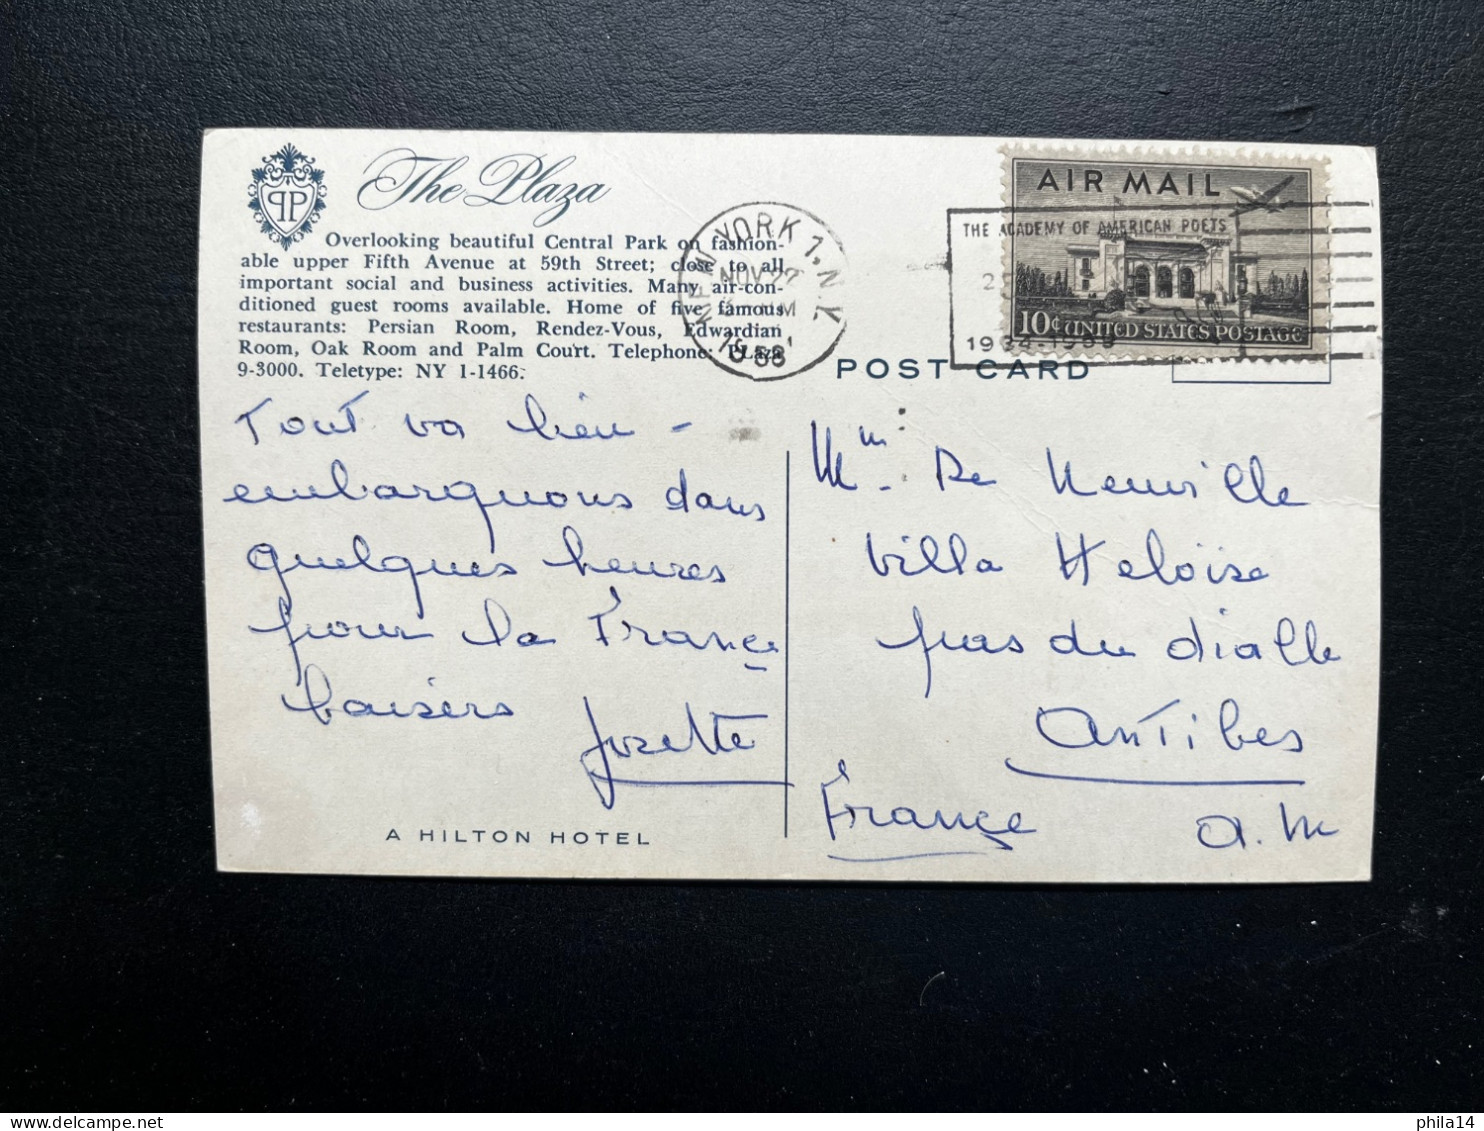 The Plaza
PP
Overlooking beautiful Central Park on fashion-
able upper Fifth Avenue at 59th Street; close to all
important social and business activities. Many air-con-
ditioned guest rooms available. Home of five famous
restaurants: Persian Room, Rendez-Vous, Edwardian
Room, Oak Room and Palm Court. Telephone: PLaza
9-3000. Teletype: NY 1-1466.
NEW YORK 1, N.Y.
NOV 22
1958
THE ACADEMY OF AMERICAN POETS
1934-1959
AIR MAIL
10¢ UNITED STATES POSTAGE
POST CARD
Tout va bien -
embarquons dans
quelques heures
pour la France
baisers
Josette
A HILTON HOTEL
Mm. De Neuville
Villa Heloïse
pas du dialle
Antibes
France
A. M
phila14